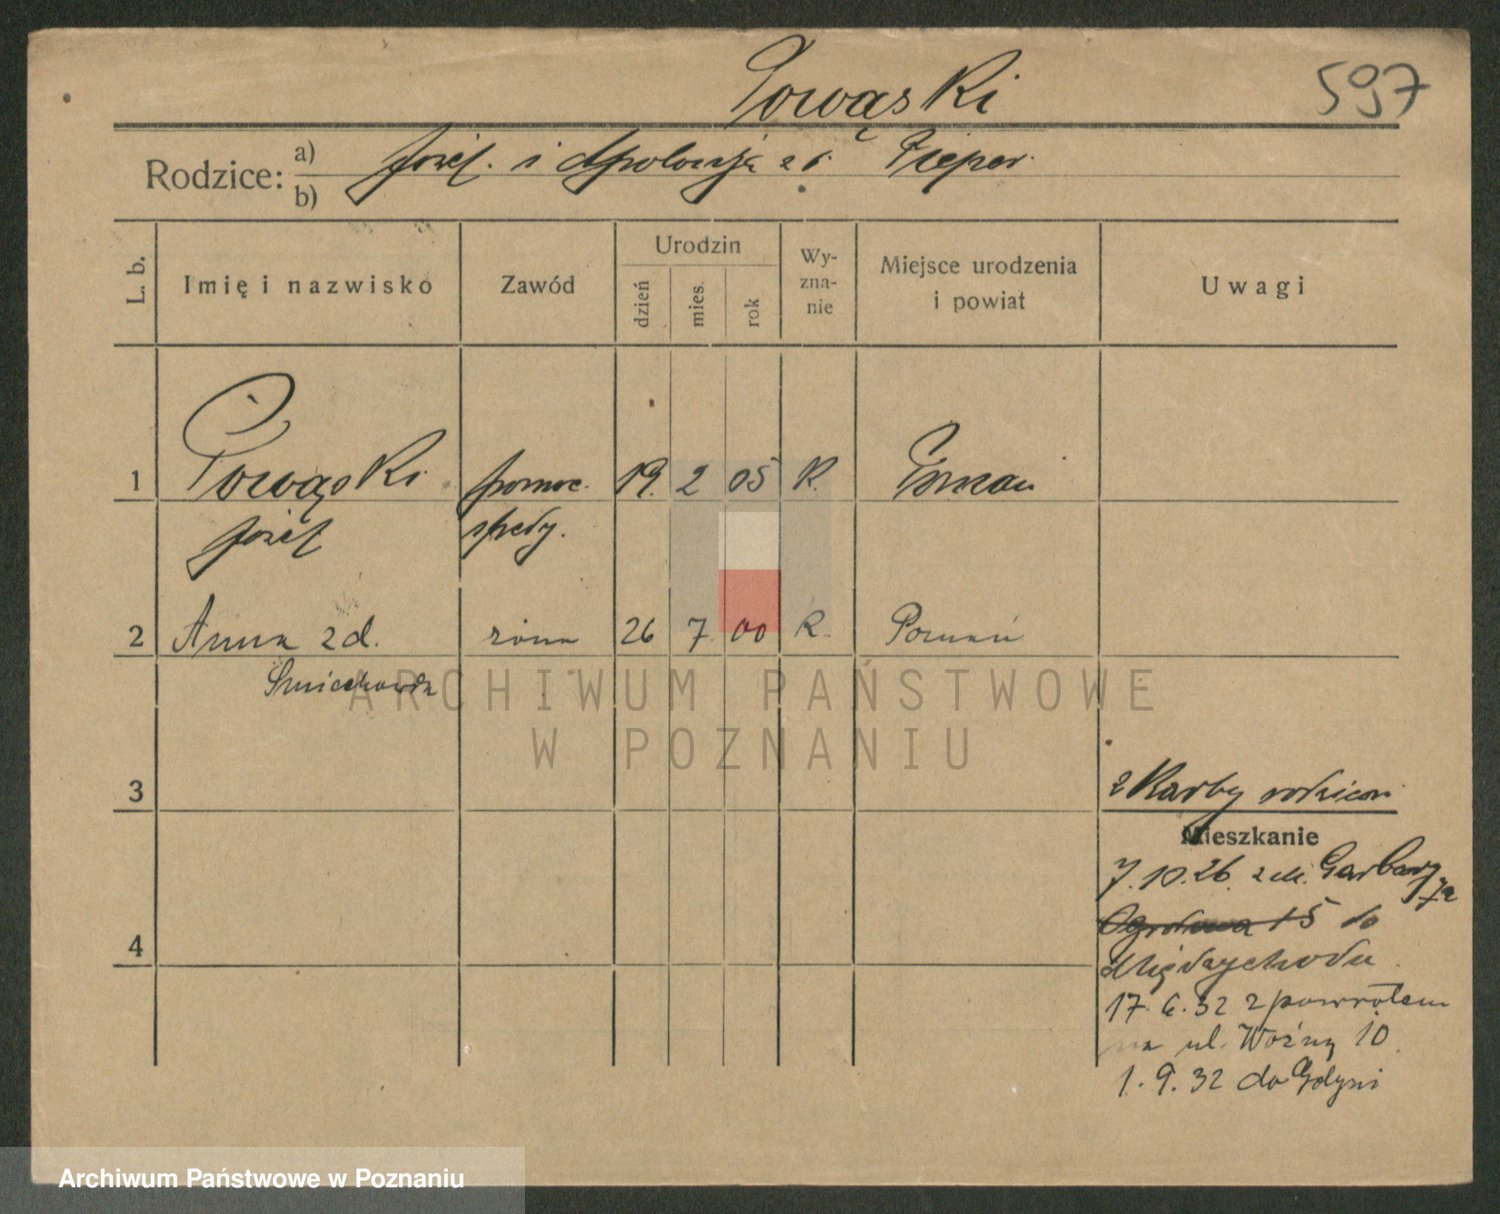 Powąski
597
Rodzice: a) Józef i Apolonja zd. Pieper
b)
L. b.
Imię i nazwisko
Zawód
Urodzin
dzień
mies.
rok
Wy-
zna-
nie
Miejsce urodzenia
i powiat
Uwagi
1 Powąski pomoc. 19. 2 05 R. Poznań
Józef spedy.
2 Anna zd. żona 26 7 00 R. Poznań
Śmiechowska
ARCHIWUM PAŃSTWOWE
W POZNANIU
3
z karty rodziców
Mieszkanie
7.10.26. Garbary
Ogrodowa 15 do
4
Międzychodu
17.6.32 z powrotem
na ul. Woźną 10
1.9.32 do Gdyni
Archiwum Państwowe w Poznaniu